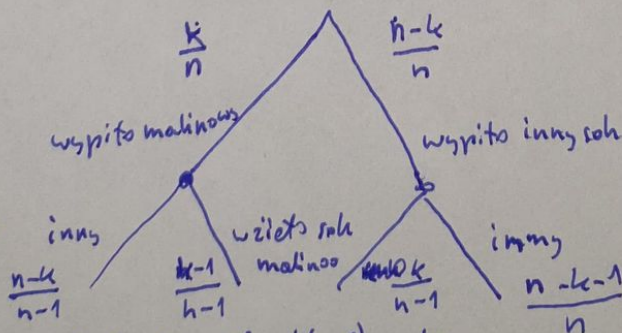 k/n n-k/n
wypito malinowy wypito inny sok
inny wzięto sok malinoo immy
n-k/n-1 k-1/n-1 k/n-1 n-k-1/n